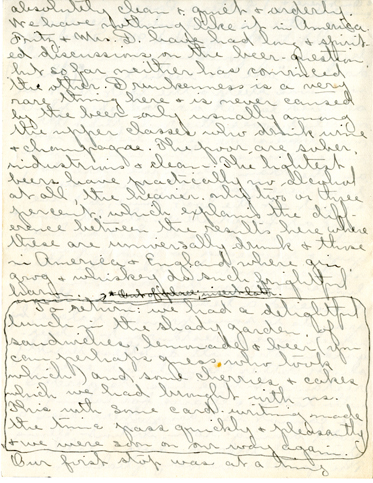 absolutely clean & quiet & orderly.
We have nothing like it in America.
Fritz & Mrs. D. have had long & spirit-
ed discussions on the beer question,
but so far neither has convinced
the other. Drunkenness is a very
rare thing here & is never caused
by the beer - only usually among
the upper classes who drink wine
& champagne. The poor are sober,
industrious & clean. The lightest
beers have practically no alcohol
at all, the heavier only two or three
percent, which explains the diff-
erence between the results here where
these are universally drunk & those
in America & England where gin,
grog & whiskey do such frightful
harm.
To return: we had a delightful
lunch in the shady garden of
sandwiches, lemonade & beer (you
can perhaps guess who took
which) and some cherries & cakes
which we had brought with us.
This with some card writing made
the time pass quickly & pleasantly
& we were soon on our way again.
Our first stop was at a tiny